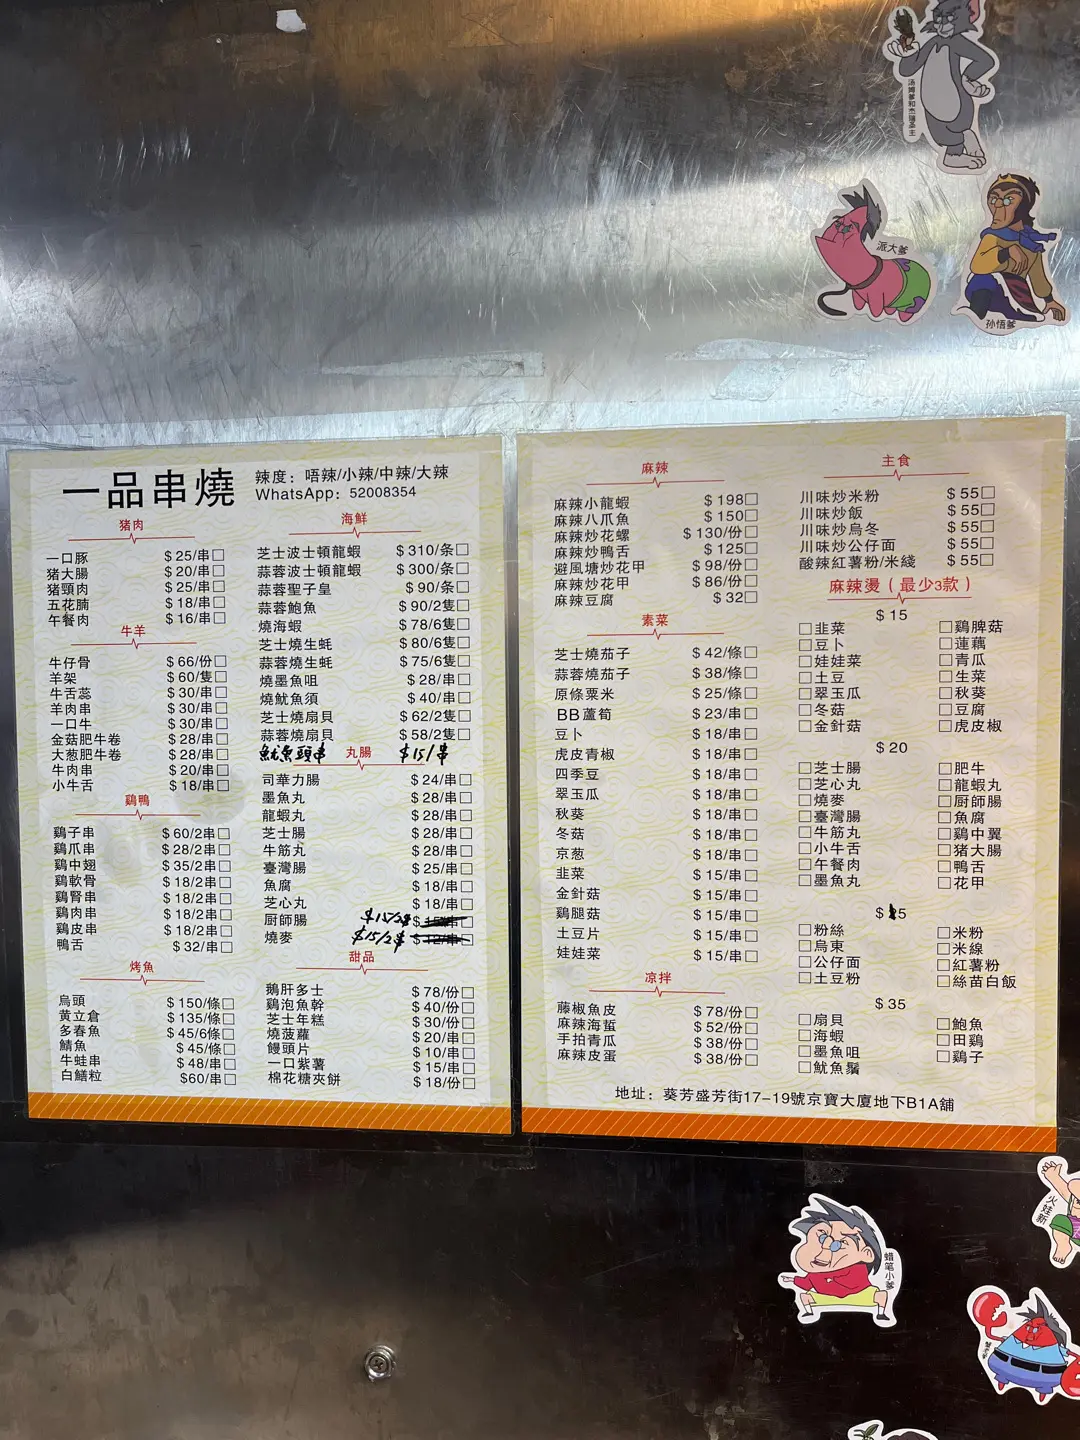 汤姆爹和杰瑞公主
派大爹
孙悟爹
一品串燒
辣度：唔辣/小辣/中辣/大辣
WhatsApp：52008354
豬肉
一口豚 $25/串□
豬大腸 $20/串□
豬頸肉 $25/串□
五花腩 $18/串□
午餐肉 $16/串□
牛羊
牛仔骨 $66/份□
羊架 $60/隻□
牛舌蕊 $30/串□
羊肉串 $30/串□
一口牛 $30/串□
金菇肥牛卷 $28/串□
大葱肥牛卷 $28/串□
牛肉串 $20/串□
小牛舌 $18/串□
鷄鴨
鷄子串 $60/2串□
鷄爪串 $28/2串□
鷄中翅 $35/2串□
鷄軟骨 $18/2串□
鷄腎串 $18/2串□
鷄肉串 $18/2串□
鷄皮串 $18/2串□
鴨舌 $32/串□
烤魚
烏頭 $150/條□
黄立倉 $135/條□
多春魚 $45/6條□
鯖魚 $45/條□
牛蛙串 $48/串□
白鱔粒 $60/串□
海鮮
芝士波士頓龍蝦 $310/条□
蒜蓉波士頓龍蝦 $300/条□
蒜蓉聖子皇 $90/条□
蒜蓉鮑魚 $90/2隻□
燒海蝦 $78/6隻□
芝士燒生蚝 $80/6隻□
蒜蓉燒生蚝 $75/6隻□
燒墨魚咀 $28/串□
燒魷魚須 $40/串□
芝士燒扇貝 $62/2隻□
蒜蓉燒扇貝 $58/2隻□
魷魚頭串 $15/串
丸腸
司華力腸 $24/串□
墨魚丸 $28/串□
龍蝦丸 $28/串□
芝士腸 $28/串□
牛筋丸 $28/串□
臺灣腸 $25/串□
魚腐 $18/串□
芝心丸 $18/串□
厨師腸 $15/2串 $15/串□
燒麥 $15/2串 $12/串□
甜品
鵝肝多士 $78/份□
鷄泡魚幹 $40/份□
芝士年糕 $30/份□
燒菠蘿 $20/串□
饅頭片 $10/串□
一口紫薯 $15/串□
棉花糖夾餅 $18/份□
麻辣
麻辣小龍蝦 $198□
麻辣八爪魚 $150□
麻辣炒花螺 $130/份□
麻辣炒鴨舌 $125□
避風塘炒花甲 $98/份□
麻辣炒花甲 $86/份□
麻辣豆腐 $32□
素菜
芝士燒茄子 $42/條□
蒜蓉燒茄子 $38/條□
原條粟米 $25/條□
BB蘆筍 $23/串□
豆卜 $18/串□
虎皮青椒 $18/串□
四季豆 $18/串□
翠玉瓜 $18/串□
秋葵 $18/串□
冬菇 $18/串□
京葱 $18/串□
韭菜 $15/串□
金針菇 $15/串□
鷄腿菇 $15/串□
土豆片 $15/串□
娃娃菜 $15/串□
凉拌
藤椒魚皮 $78/份□
麻辣海蜇 $52/份□
手拍青瓜 $38/份□
麻辣皮蛋 $38/份□
主食
川味炒米粉 $55□
川味炒飯 $55□
川味炒烏冬 $55□
川味炒公仔面 $55□
酸辣紅薯粉/米綫 $55□
麻辣燙（最少3款）
$15
□韭菜 □鷄脾菇
□豆卜 □蓮藕
□娃娃菜 □青瓜
□土豆 □生菜
□翠玉瓜 □秋葵
□冬菇 □豆腐
□金針菇 □虎皮椒
$20
□芝士腸 □肥牛
□芝心丸 □龍蝦丸
□燒麥 □厨師腸
□臺灣腸 □魚腐
□牛筋丸 □鷄中翼
□小牛舌 □猪大腸
□午餐肉 □鴨舌
□墨魚丸 □花甲
$15
□粉絲 □米粉
□烏東 □米線
□公仔面 □紅薯粉
□土豆粉 □絲苗白飯
$35
□扇貝 □鮑魚
□海蝦 □田鷄
□墨魚咀 □鷄子
□魷魚鬚
地址：葵芳盛芳街17-19號京寶大廈地下B1A舖
火娃新
蜡笔小爹